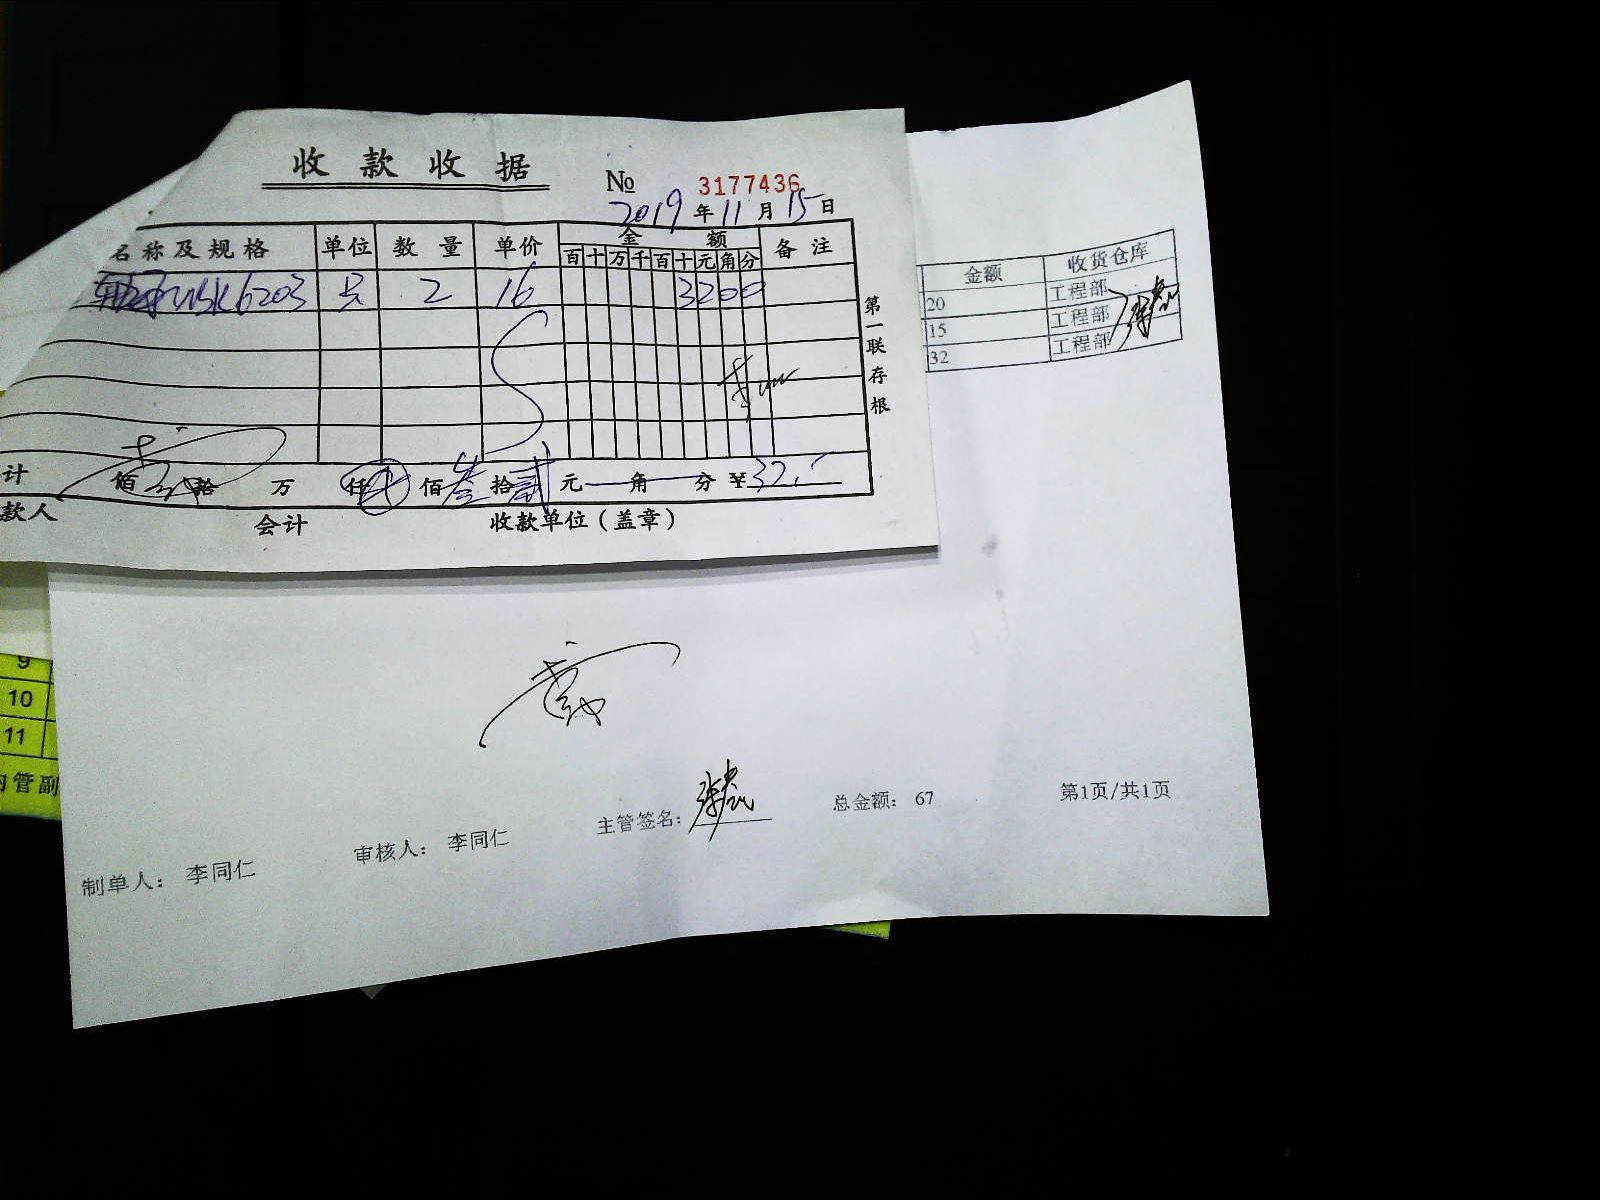 收款收据
№ 3177436
2019年11月15日
名称及规格 单位 数量 单价 金额 备注
百十万千百十元角分
轴承NSK6203 只 2 16 3200
第一联存根
计 佰 拾 万 仟 佰叁拾贰元 角 分 ¥32.
款人 会计 收款单位(盖章)
金额 收货仓库
20 工程部
15 工程部
32 工程部
9
10
11
内管副
制单人: 李同仁 审核人: 李同仁 主管签名: 总金额: 67 第1页/共1页